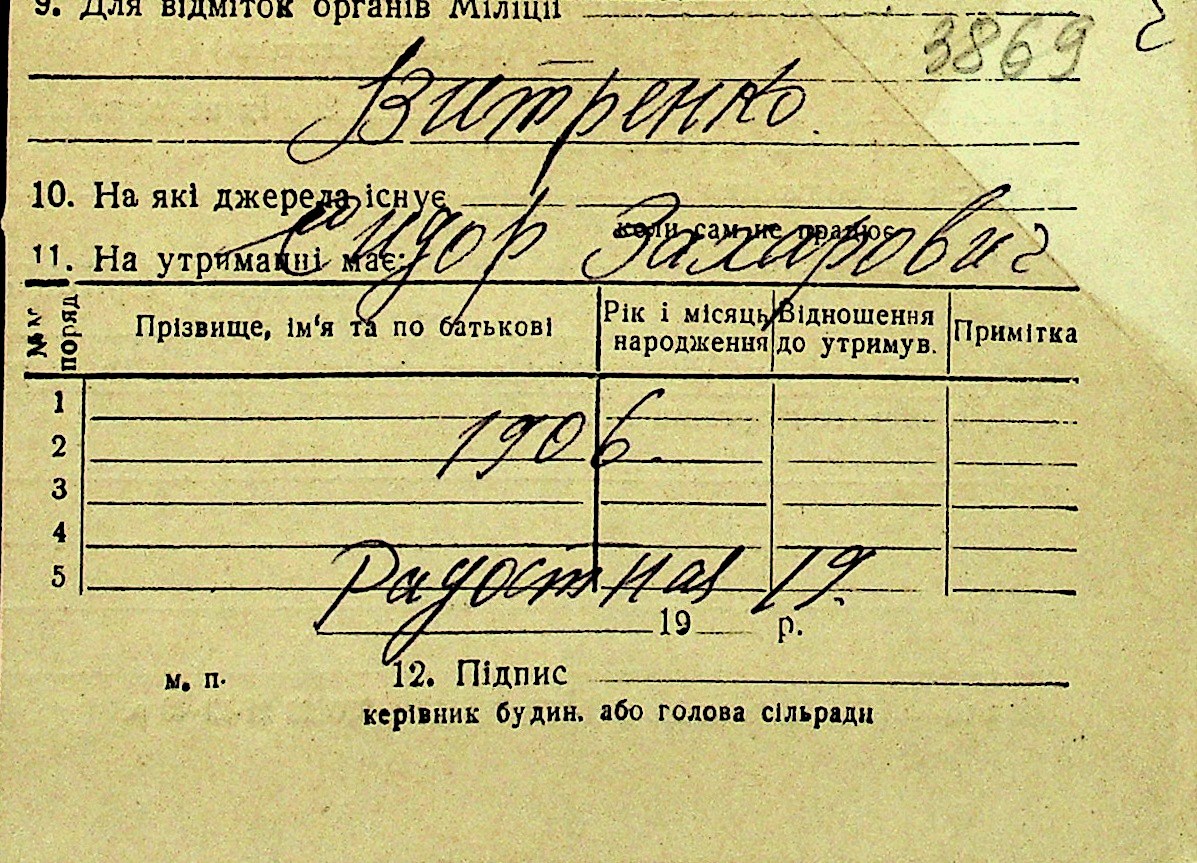 9. Для відміток органів Міліції
3869
Витренко
10. На які джерела існує
коли сам не працює
Сидор Захарович
11. На утриманні має:
№№ поряд
Прізвище, ім'я та по батькові
Рік і місяць народження
Відношення до утримув.
Примітка
1
2
3
4
5
1906.
Радостная 19.
19 р.
м. п.
12. Підпис
керівник будин. або голова сільради